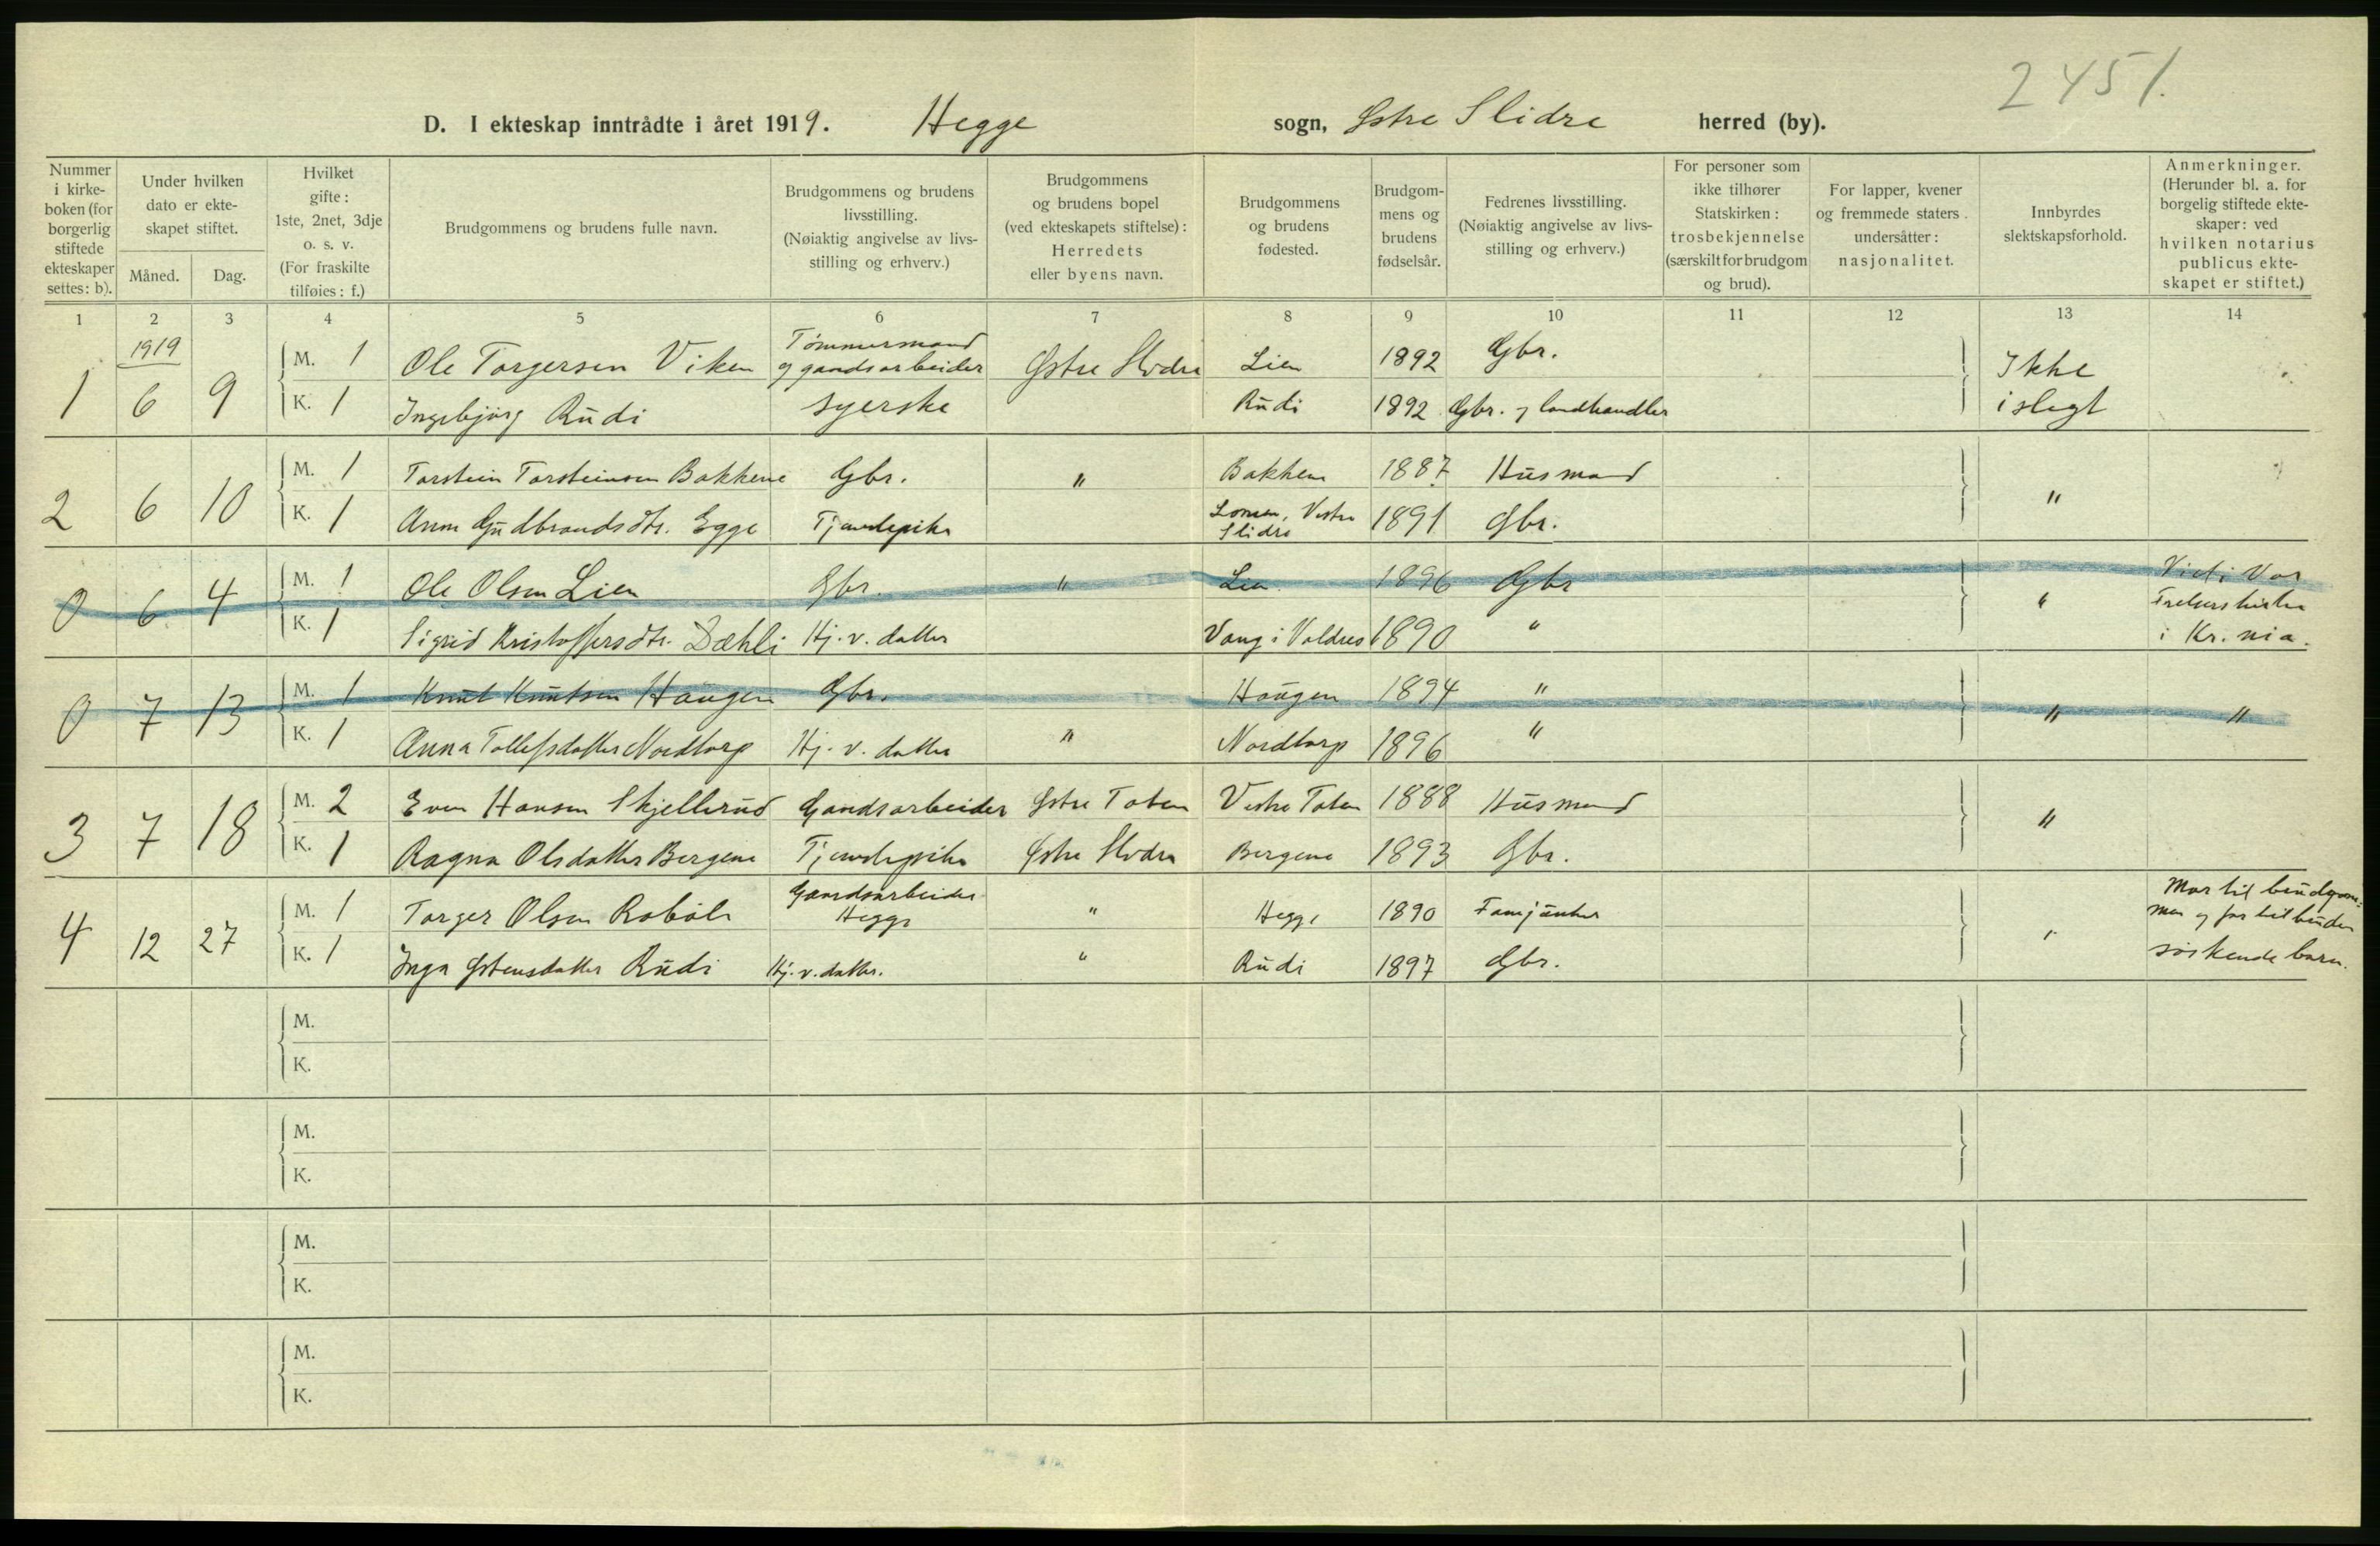 2451.
D. I ekteskap inntrådte i året 1919. Hegge sogn, Østre Slidre herred (by).
Nummer i kirke- boken (for borgerlig stiftede ekteskaper settes: b).
Under hvilken dato er ekte- skapet stiftet.
Måned. Dag.
Hvilket gifte: 1ste, 2net, 3dje o. s. v. (For fraskilte tilføies: f.)
Brudgommens og brudens fulle navn.
Brudgommens og brudens livsstilling. (Nøiaktig angivelse av livs- stilling og erhverv.)
Brudgommens og brudens bopel (ved ekteskapets stiftelse): Herredets eller byens navn.
Brudgommens og brudens fødested.
Brudgom- mens og brudens fødselsår.
Fedrenes livsstilling. (Nøiaktig angivelse av livs- stilling og erhverv.)
For personer som ikke tilhører Statskirken: trosbekjennelse (særskilt for brudgom og brud).
For lapper, kvener og fremmede staters undersåtter: nasjonalitet.
Innbyrdes slektskapsforhold.
Anmerkninger. (Herunder bl. a. for borgelig stiftede ekte- skaper: ved hvilken notarius publicus ekte- skapet er stiftet.)
1 2 3 4 5 6 7 8 9 10 11 12 13 14
1919
1 6 9 M. 1 Ole Torgersen Viken Tømmermand og gaardsarbeider Østre Slidre Lien 1892 Gbr. Ikke
K. 1 Ingebjørg Rudi syerske Rudi 1892 Gbr. og landhandler i slegt
2 6 10 M. 1 Torstein Torsteinsen Bakkene Gbr. " Bakken 1887 Husmand "
K. 1 Anna Gudbrandsdtr. Egge Tjenestepike Lomen, Vestre Slidre 1891 Gbr.
0 6 4 M. 1 Ole Olsen Lien Gbr. " Lien 1896 Gbr " Viet i Vor Frelsers kirke i Kr.nia.
K. 1 Sigrid Kristoffersdtr. Dæhli Hj. v. datter Vang i Valdres 1890 "
0 7 13 M. 1 Knut Knutsen Haugen Gbr. Haugen 1894 " " "
K. 1 Anna Tollefsdatter Nordtorp Hj. v. datter " Nordtorp 1896 "
3 7 18 M. 2 Even Hansen Skjellerud Gaardsarbeider Østre Toten Vestre Toten 1888 Husmand "
K. 1 Ragna Olsdatter Bergene Tjenestepike Østre Slidre Bergene 1893 Gbr.
4 12 27 M. 1 Torger Olsen Robøle Gaardsarbeider Hegge " Hegge 1890 Fanejunker " Mor til brudgom- men og far til bruden søskendebarn.
K. 1 Inga Østensdatter Rudi Hj. v. datter. " Rudi 1897 Gbr.
M.
K.
M.
K.
M.
K.
M.
K.